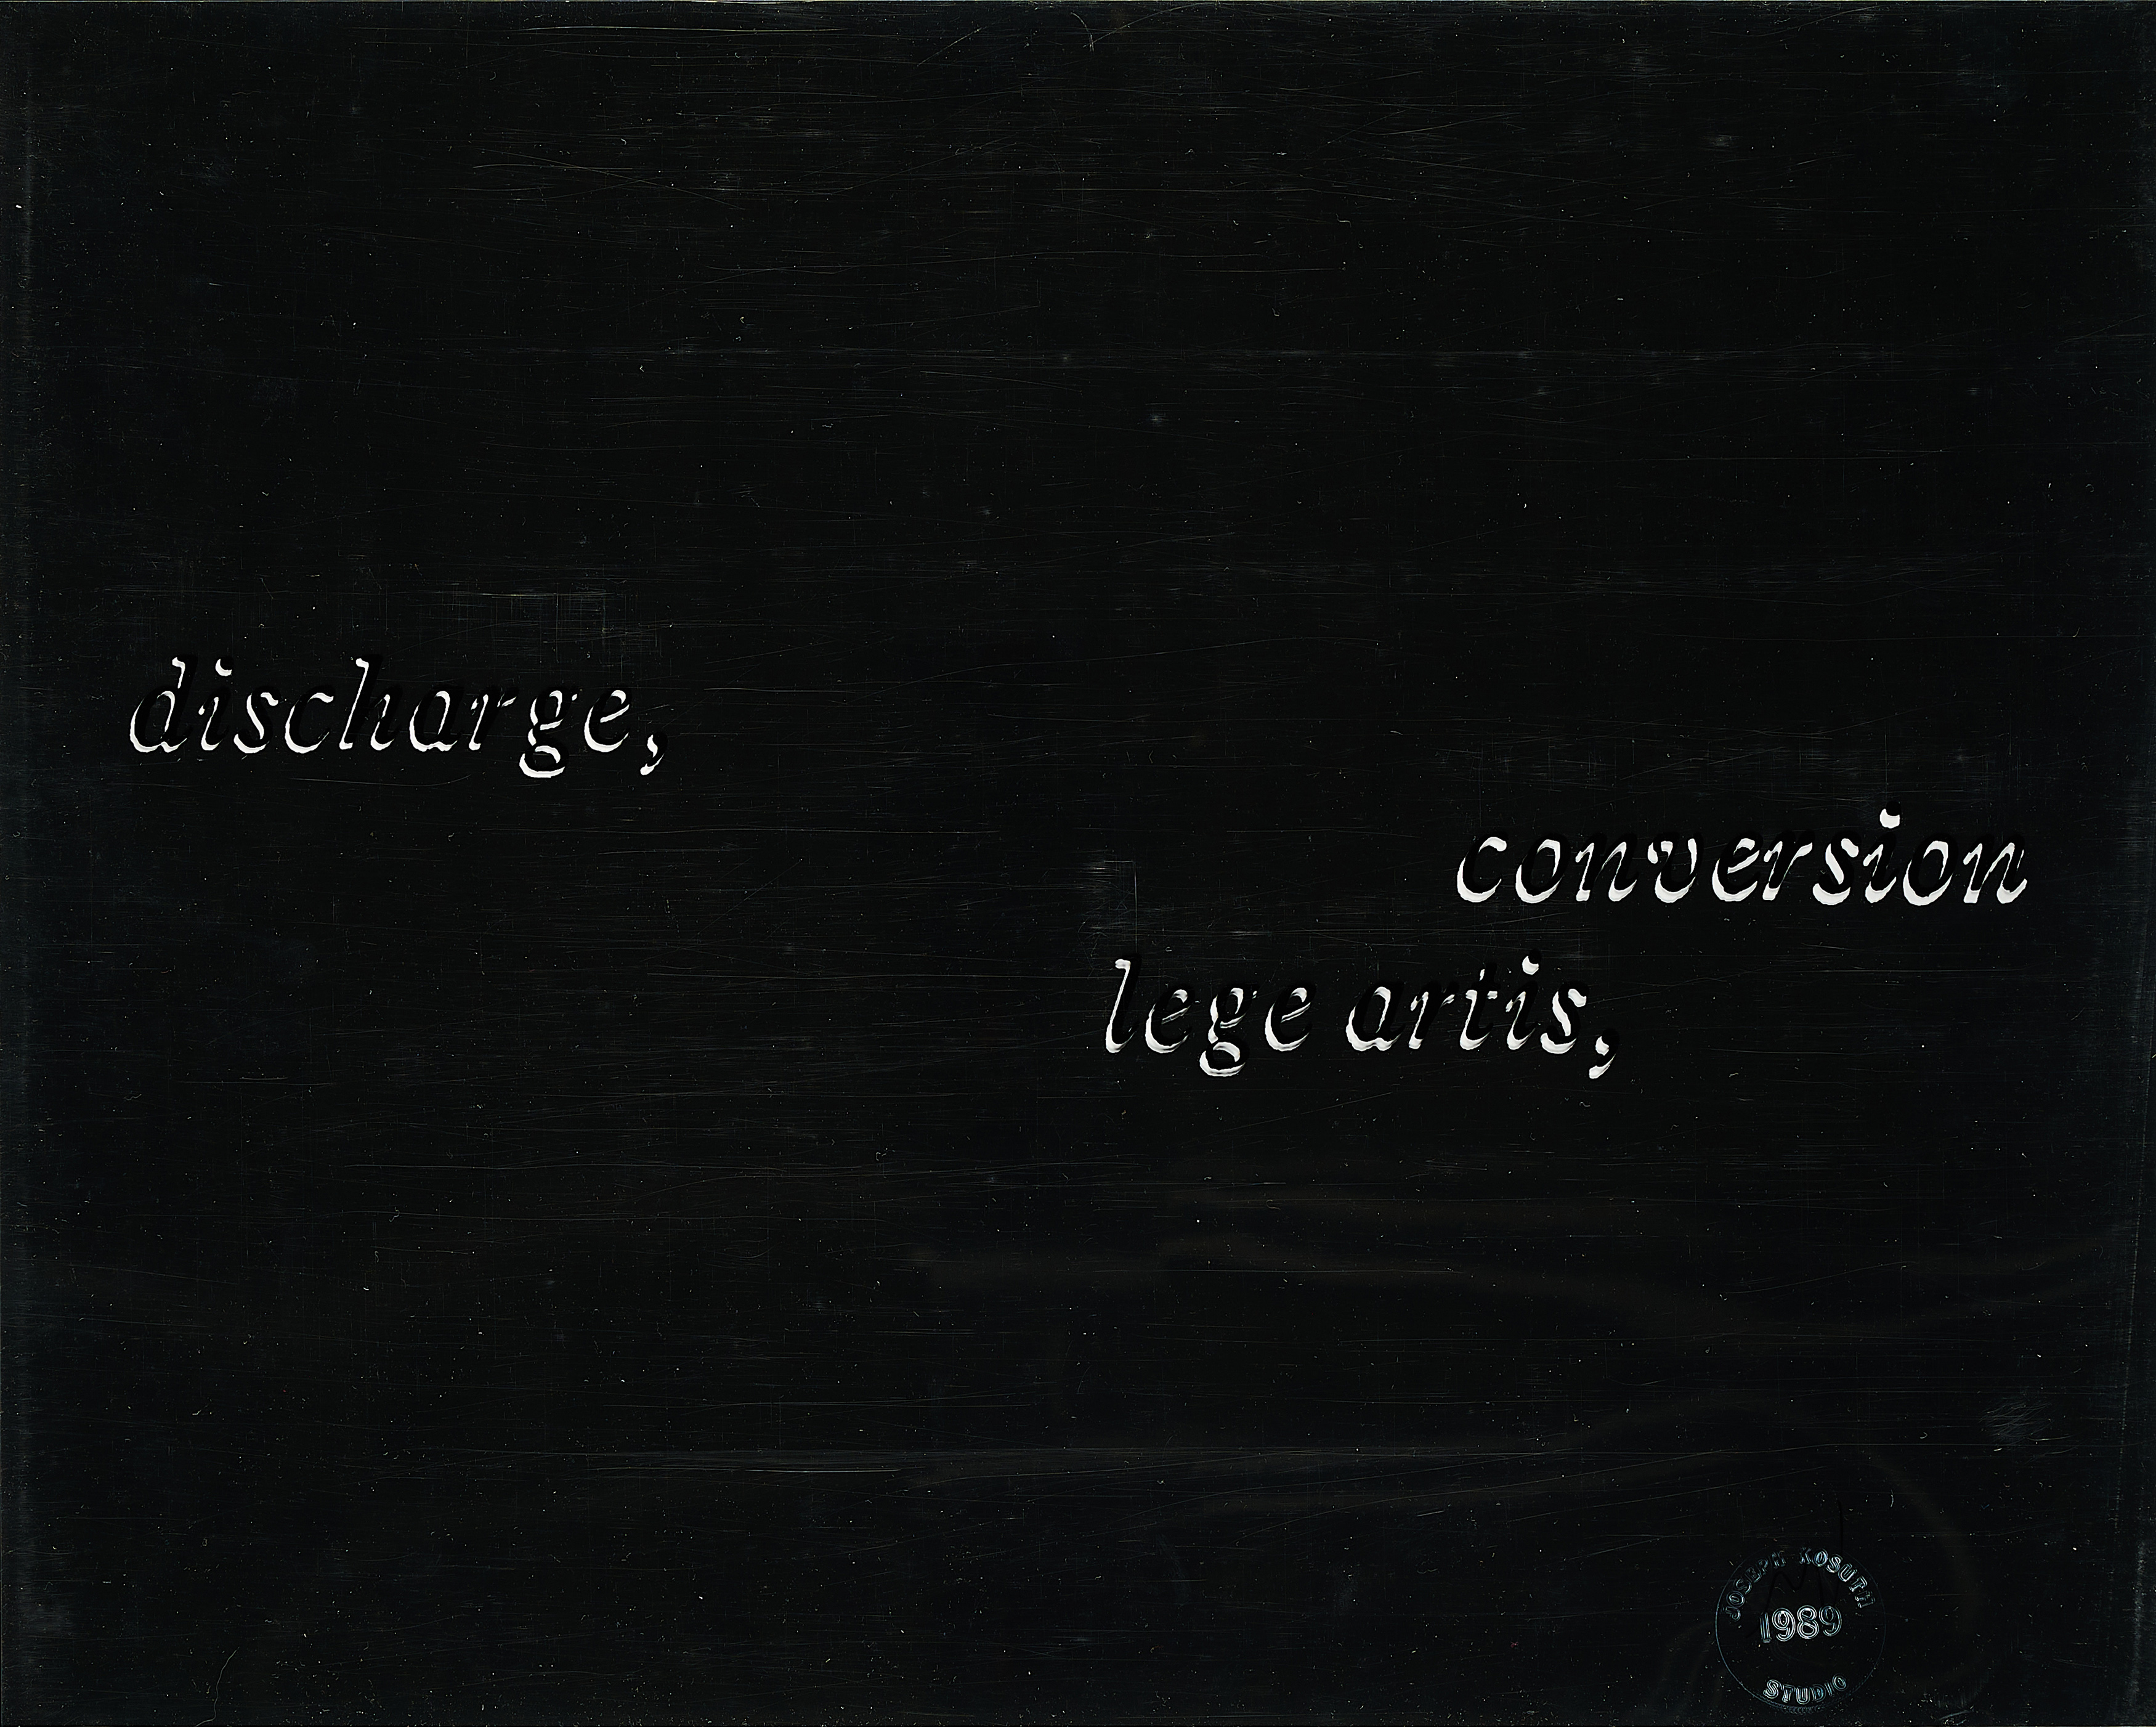 discharge,
conversion
lege artis,
JOSEPH KOSUTH
1989
STUDIO